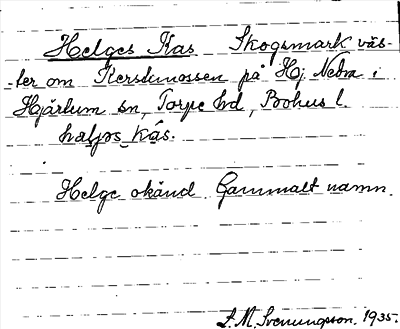 Helges Kas Skogsmark väs-
-ter om Kerstemossen på Hj. Nedra i
Hjärtum sn, Torpe hd, Bohus l.
haljəs kás.
Helge okänd. Gammalt namn.
L. M. Svenungsson. 1935.